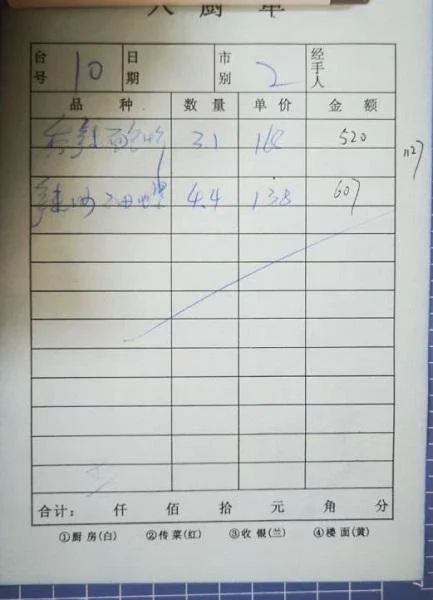 入厨单
台号 10 日期 市别 2 经手人
品种 数量 单价 金额
3.1 168 520
4.4 138 607
1127
合计: 仟 佰 拾 元 角 分
①厨房(白) ②传菜(红) ③收银(兰) ④楼面(黄)